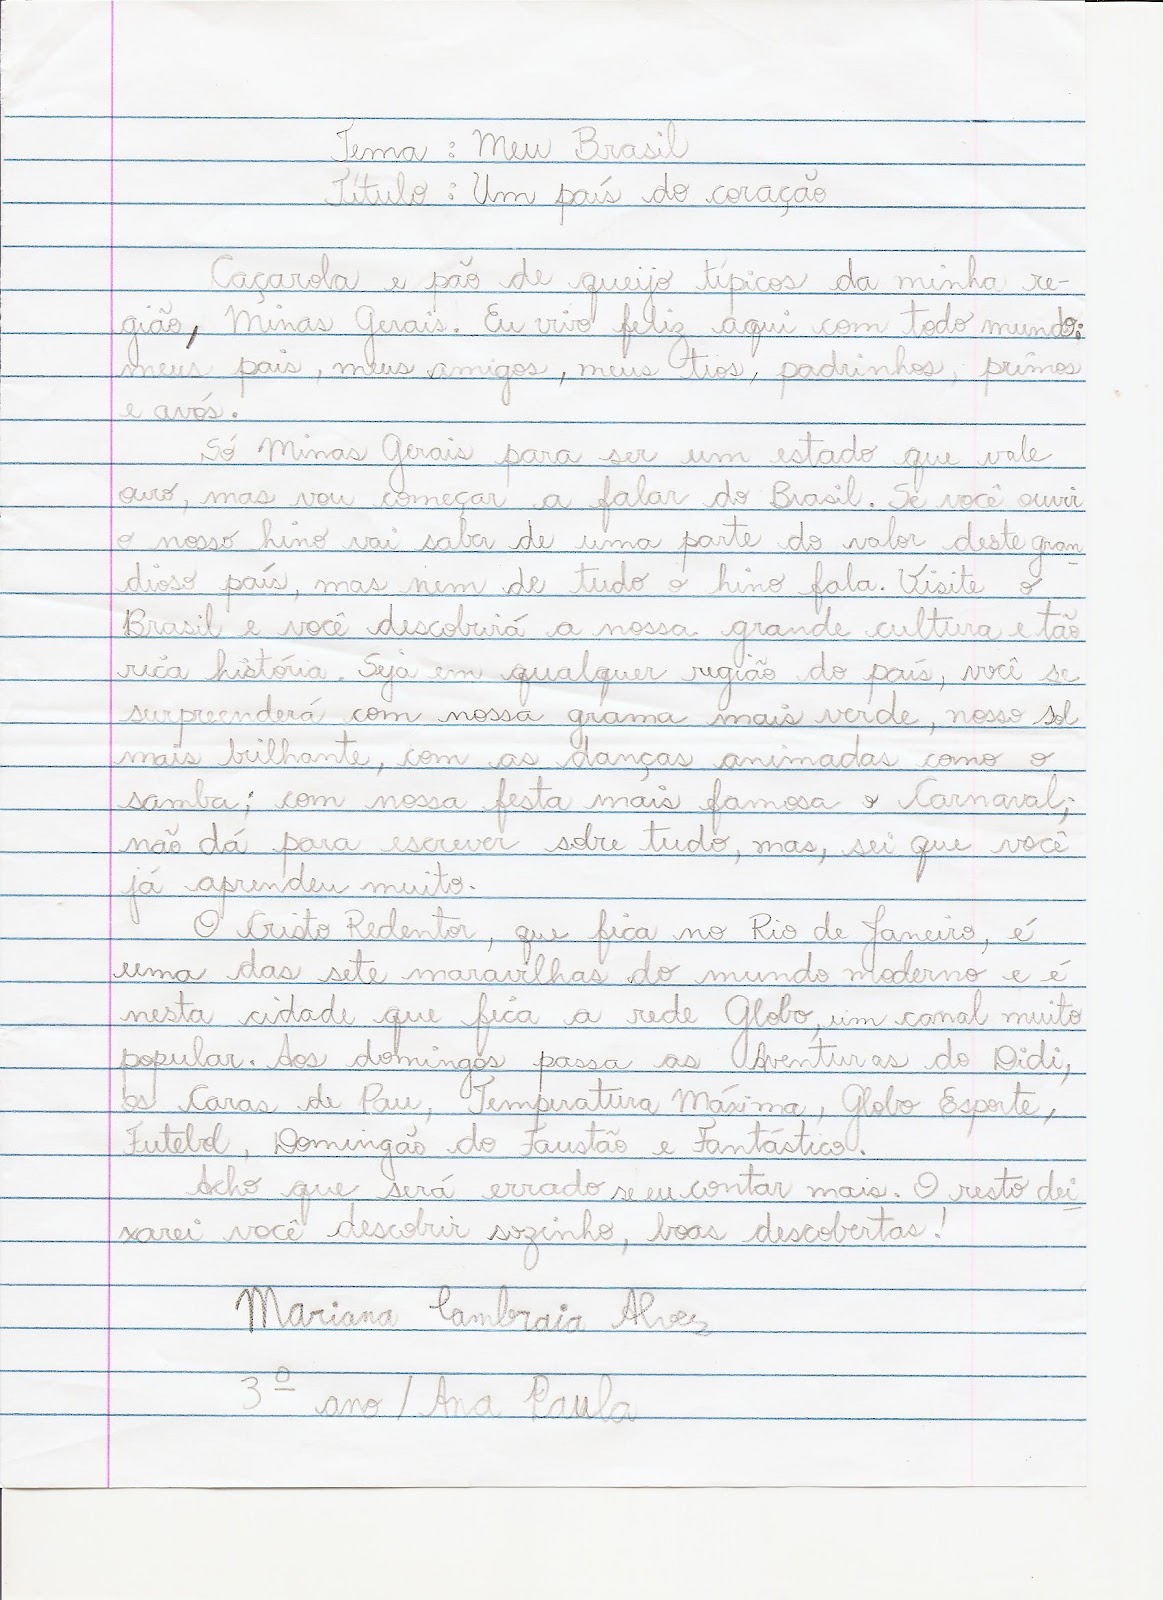 Tema : Meu Brasil
Título : Um país do coração
Caçarola e pão de queijo típicos da minha re-
gião, Minas Gerais. Eu vivo feliz aqui com todo mundo:
meus pais, meus amigos, meus tios, padrinhos, primos
e avós.
Só Minas Gerais para ser um estado que vale
ouro, mas vou começar a falar do Brasil. Se você ouvir
o nosso hino vai saber de uma parte do valor deste gran-
dioso país, mas nem de tudo o hino fala. Visite o
Brasil e você descobrirá a nossa grande cultura e tão
rica história. Seja em qualquer região do país, você se
surpreenderá com nossa grama mais verde, nosso sol
mais brilhante, com as danças animadas como o
samba; com nossa festa mais famosa o Carnaval;
não dá para escrever sobre tudo, mas, sei que você
já aprendeu muito.
O Cristo Redentor, que fica no Rio de Janeiro, é
uma das sete maravilhas do mundo moderno e é
nesta cidade que fica a rede Globo, um canal muito
popular. Aos domingos passa as Aventuras do Didi,
Os Caras de Pau, Temperatura Máxima, Globo Esporte,
Futebol, Domingão do Faustão e Fantástico.
Acho que será errado se eu contar mais. O resto dei-
xarei você descobrir sozinho, boas descobertas!
Mariana Cambraia Alves
3º ano / Ana Paula